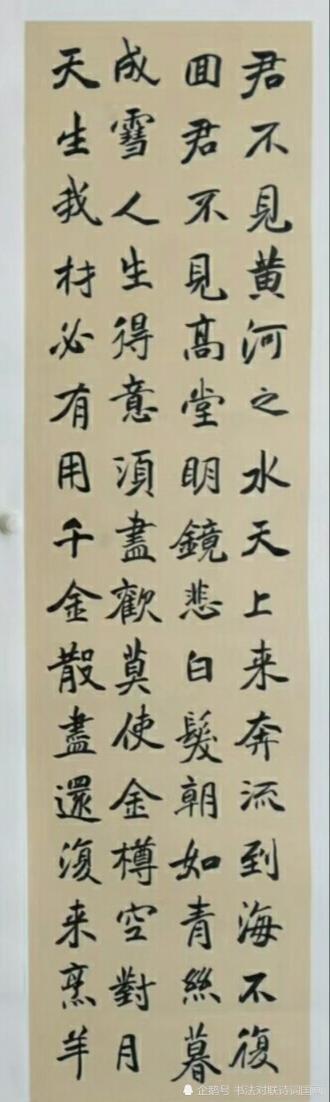 君不見黄河之水天上来奔流到海不復
回君不見高堂明鏡悲白髮朝如青絲暮
成雪人生得意須盡歡莫使金樽空對月
天生我材必有用千金散盡還復来烹羊
企鹅号 书法对联诗词国画